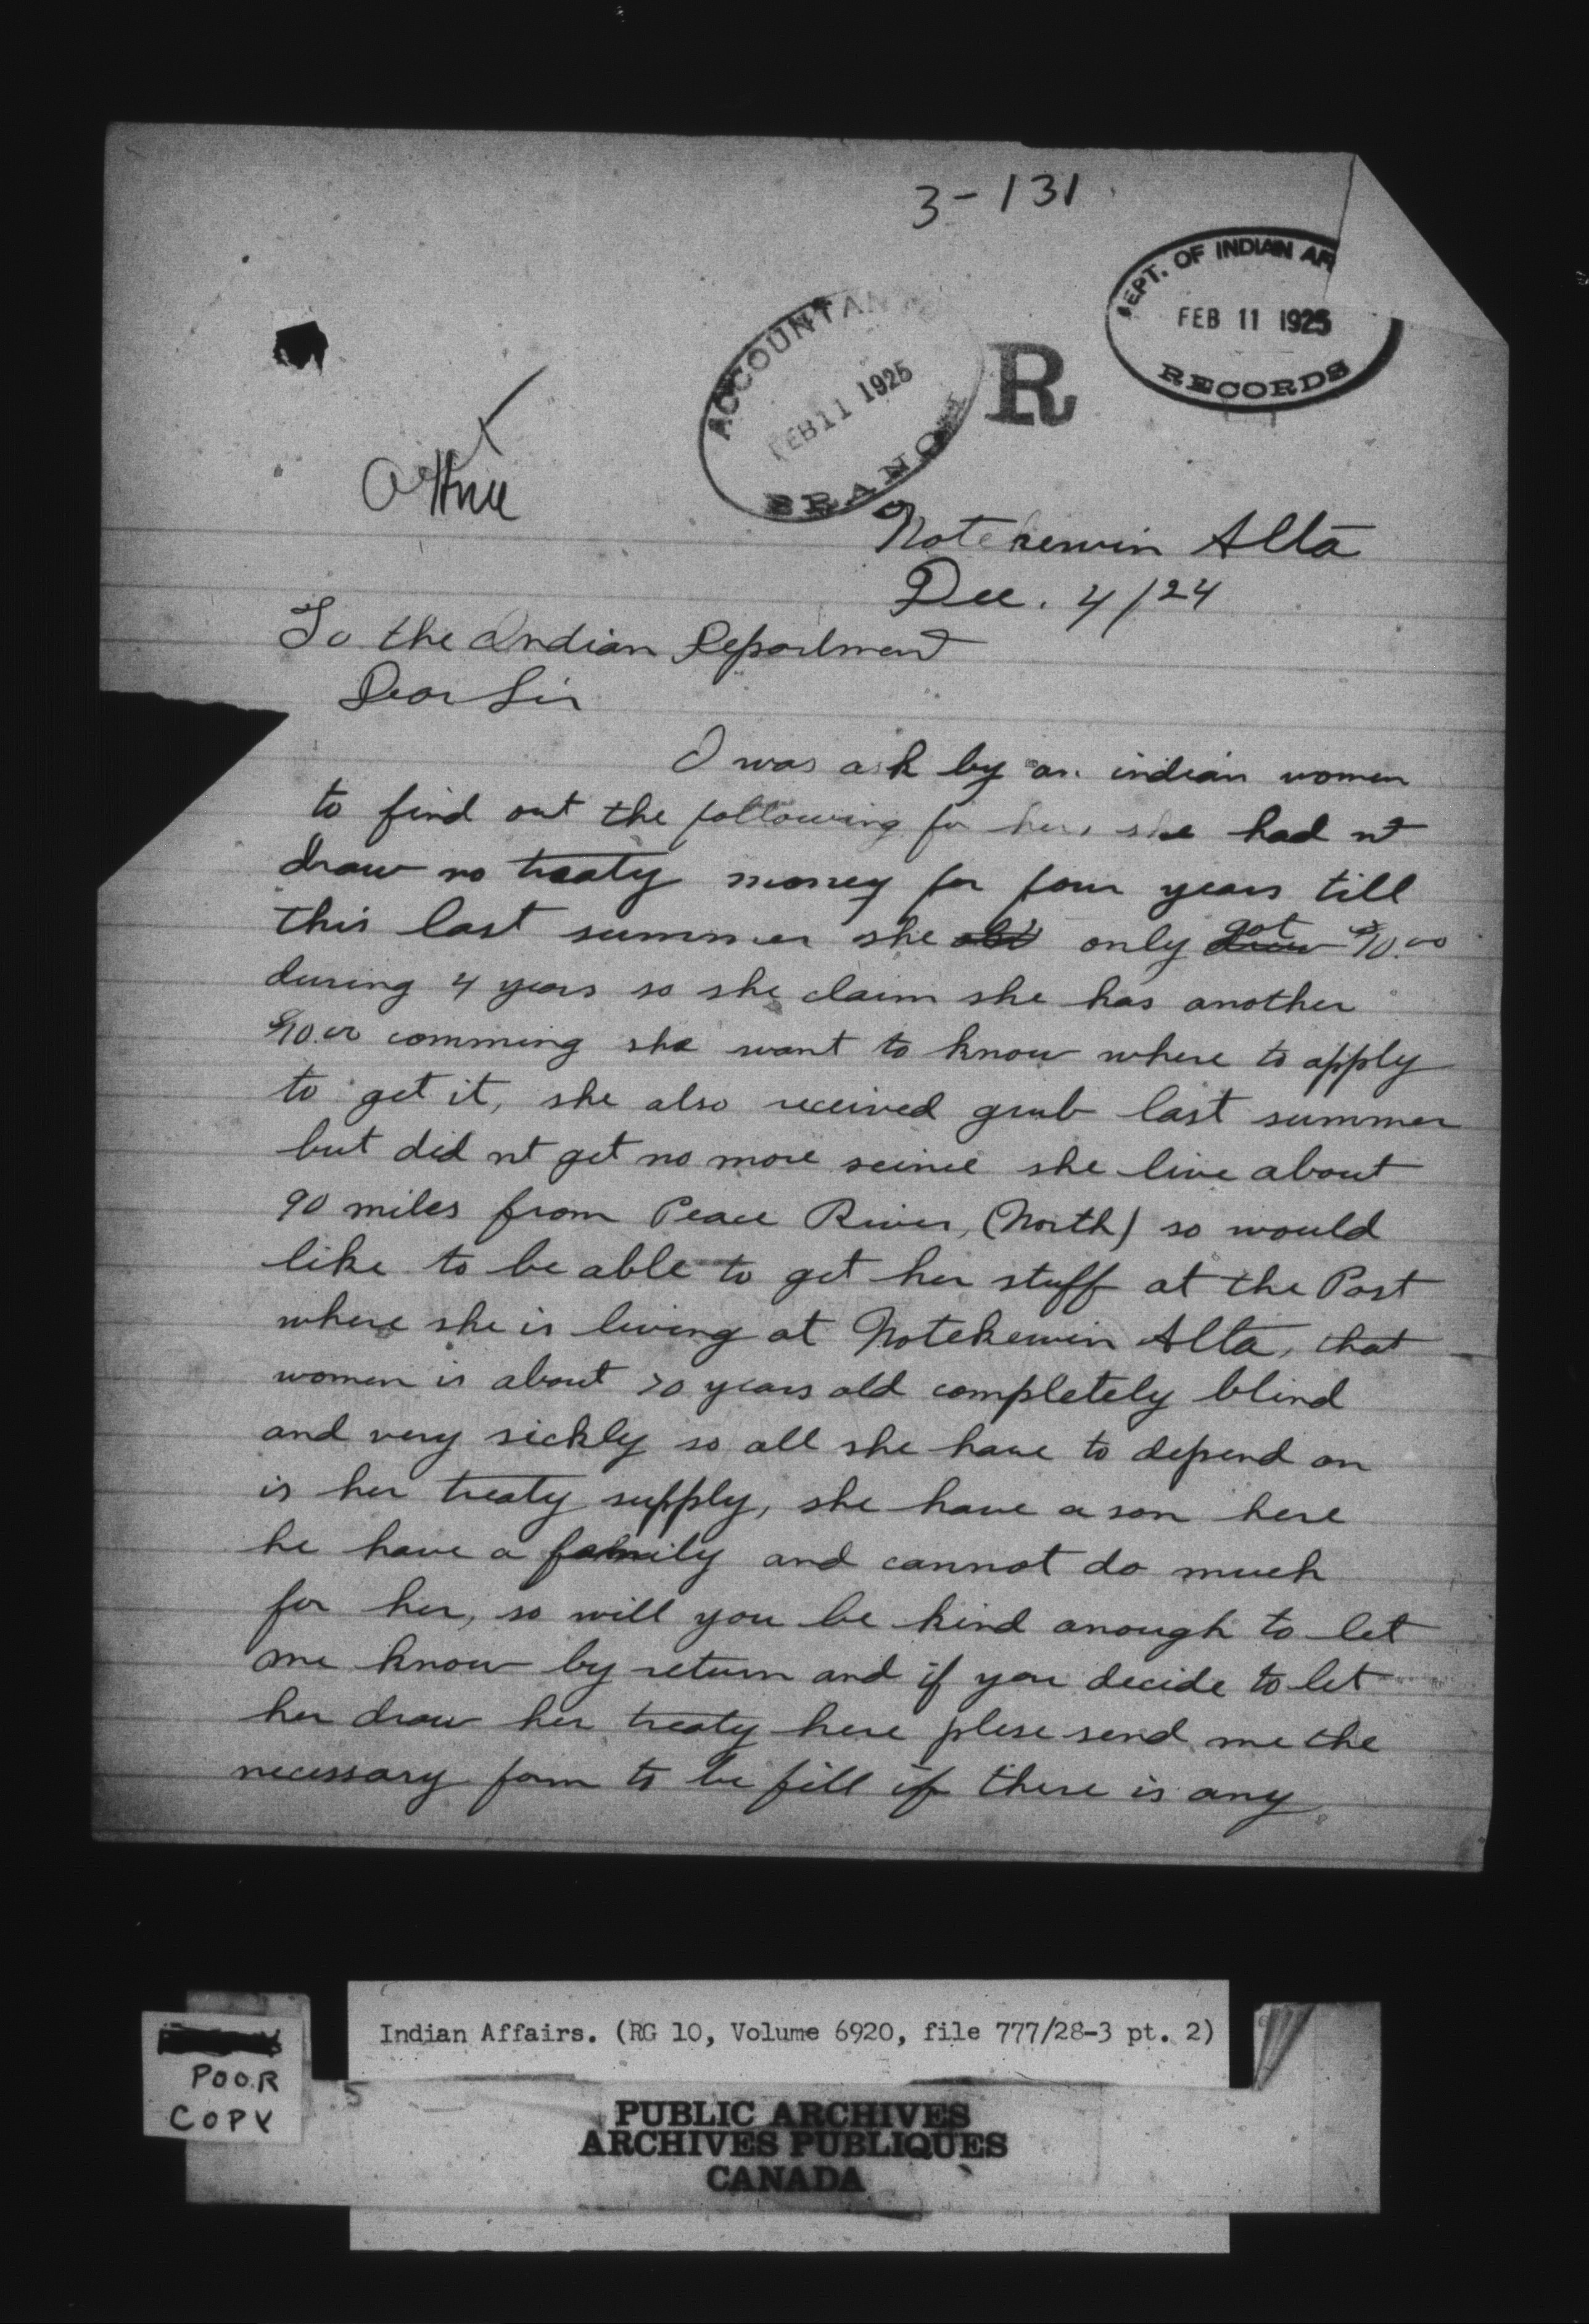 3-131
DEPT. OF INDIAN AF
FEB 11 1925
RECORDS
ACCOUNTAN
FEB 11 1925
BRANCH
R
Notekewin Alta
Dec. 4/24
To the Indian Department
Dear Sir
I was ask by an indian women
to find out the following for her, she had nt
draw no treaty money for four years till
this last summer she only got $10.00
during 4 years so she claim she has another
$10.00 comming she want to know where to apply
to get it, she also received grub last summer
but did nt get no more seince she live about
90 miles from Peace River, (North) so would
like to be able to get her stuff at the Post
where she is living at Notekewin Alta, that
women is about 70 years old completely blind
and very sickly so all she have to depend on
is her treaty supply, she have a son here
he have a family and cannot do much
for her, so will you be kind anough to let
me know by return and if you decide to let
her draw her treaty here plese send me the
necessary form to be fill if there is any
Indian Affairs. (RG 10, Volume 6920, file 777/28-3 pt. 2)
POOR
COPY
PUBLIC ARCHIVES
ARCHIVES PUBLIQUES
CANADA